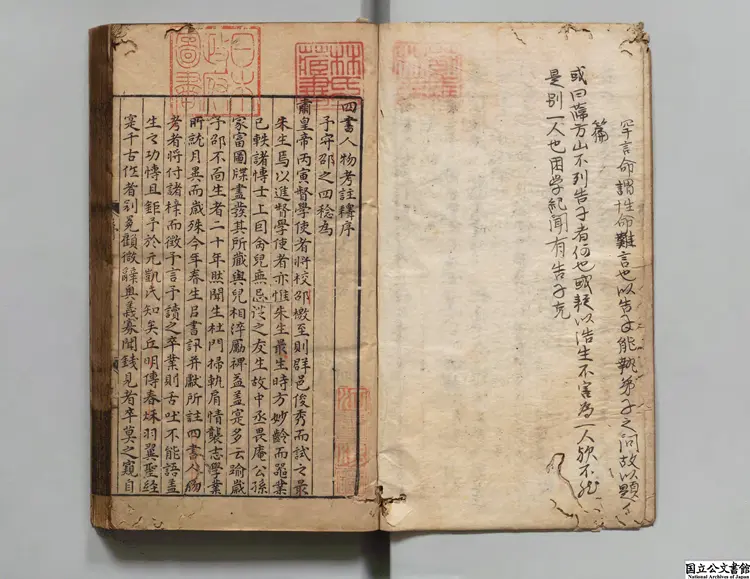 罕言命謂性命難言也以告子能執弟子之問故以題
篇
或曰薛方山不列告子者何也或疑以浩生不害為一人欤不然
是别一人也困学紀聞有告子亮
林氏
蔵書
日本
政府
圖書
四書人物考註釋序
予守邵之四稔為
肅皇帝丙寅督學使者將校邵檄至則群邑俊秀而試之最
朱生焉以進督學使者亦惟朱生最生時方妙齡而噐業
已軼諸博士上因令兒無忌從之友生故中丞畏庵公孫
家富圖牒盡發其所藏與兒相淬勵裨益寔多云踰歲
予邵不面生者二十年照聞生杜門掃軌肩情襲志學業
所就月異而歲殊今年春生召書訊并厭所註四書人物
考者將付諸梓而徵予言予讀之卒業則舌吐不能語盖
生之功慱且鉅予於元凱氏知矣丘明傳春秋羽翼聖經
寔千古從者别冕顧微辭與義寡聞錢見者卒莫之窺自
国立公文書館
National Archives of Japan